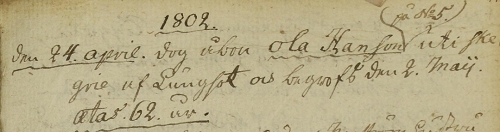 1802.
på No 5.
den 24. april. dog åbon ola Hanson uti ske
grie af Lungsot os begrofs den 2. Maij.
ætas. 62. år.